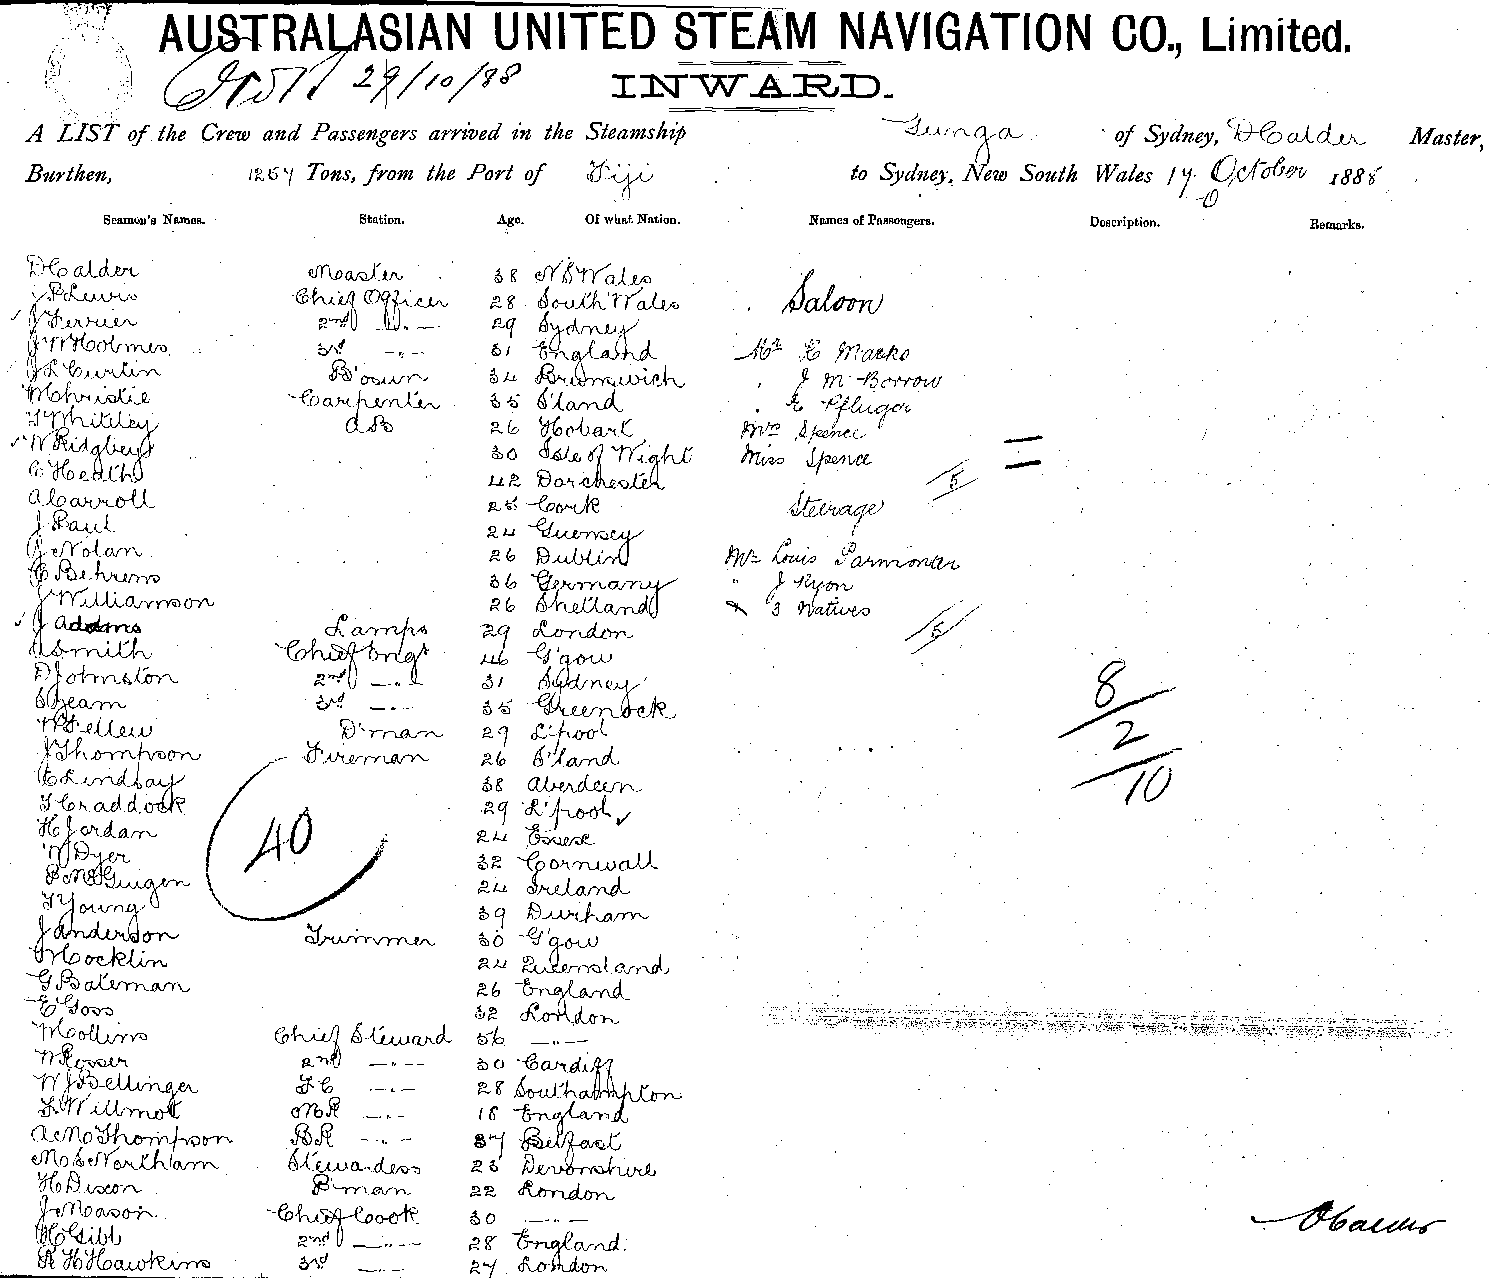 AUSTRALASIAN UNITED STEAM NAVIGATION CO., Limited.
29/10/88
INWARD.
A LIST of the Crew and Passengers arrived in the Steamship Gunga of Sydney, D Calder Master,
Burthen, 1257 Tons, from the Port of Fiji to Sydney, New South Wales 17 October 1888
Seamen's Names. Station. Age. Of what Nation. Names of Passengers. Description. Remarks.
D Calder Master 38 N S Wales
J P Lewis Chief Officer 28 South Wales Saloon
J Ferrier 2nd -"- 29 Sydney
J W Holmes 3rd -"- 31 England Mr E Macks
J L Curtin B'osun 34 Brunswich . J Mc Borrow
M Christie Carpenter 35 S'land . E Pfluger
T Whiteley AB 26 Hobart Mrs Spence
W Ridgbey 30 Isle of Wight Miss Spence
C Heath 42 Dorchester 5
A Carroll 25 Cork Steerage
J Paul 24 Guernsey
J Nolan 26 Dublin Mr Louis Parmonter
C Behrens 36 Germany " J Ryon
J Williamson 26 Shetland 3 Natives
J Adams Lamps 29 London 5
A Smith Chief Engr 46 G'gow
D Johnston 2nd -"- 31 Sydney
S Beam 3rd -"- 35 Greenock
W Fellew D'man 29 L'pool
J Thompson Fireman 26 S'land
C Lindsay 38 Aberdeen
T Craddock 29 L'pool
H Jordan 24 Essex
W Dyer 32 Cornwall
P McGuigen 24 Ireland
T Young 39 Durham
J Anderson Trimmer 30 G'gow
T Mocklin 24 Queensland
G Bateman 26 England
E Goss 32 London
M Collins Chief Steward 56 -"-
W Rosser 2nd -"- 30 Cardiff
W J Bellinger FC -"- 28 Southampton
F Willmot MR -"- 18 England
A McThompson BR -"- 37 Belfast
M S Northam Stewardess 23 Devonshire
H Dixon P'man 22 London
J Mason Chief Cook 30 -"-
H Gibb 2nd -"- 28 England
R H Hawkins 3rd -"- 27 London
40
8
2
10
D Calder